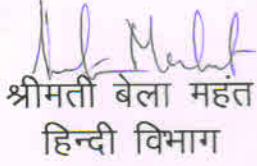 श्रीमती बेला महंत
हिन्दी विभाग